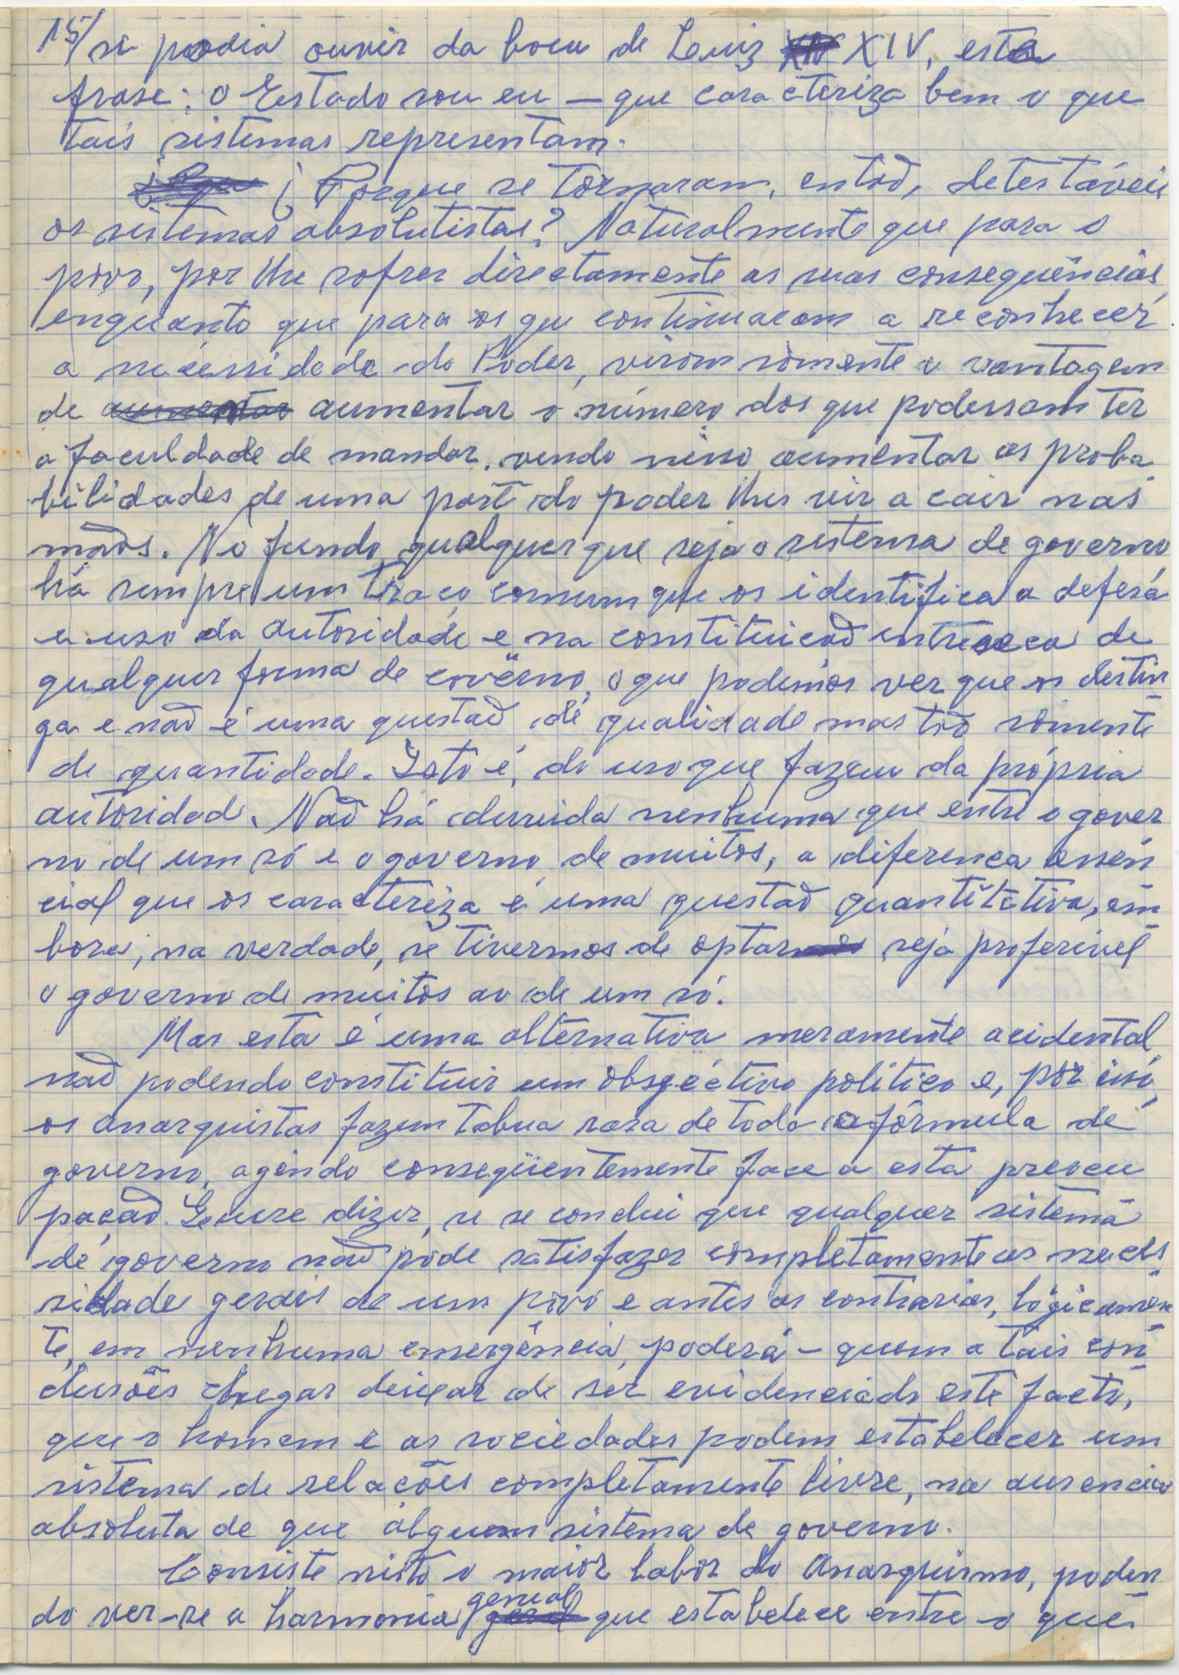 15/ se podia ouvir da boca de Luiz XIV, esta
frase: o Estado sou eu — que caracteriza bem o que
tais sistemas representam.
¿ Porque se tornaram, então, detestáveis
os sistemas absolutistas? Naturalmente que para o
povo, por lhe sofrer directamente as suas consequências,
enquanto que para os que continuaram a reconhecer
a necessidade do Poder, viram sòmente a vantagem
de aumentar o número dos que podessam ter
a faculdade de mandar, vendo nisso aumentar as proba
bilidades de uma parte do poder lhes vir a cair nas
mãos. No fundo, qualquer que seja o sistema de governo
há sempre um traço comum que os identifica a defesa
e uso da autoridade e na constituição intrinseca de
qualquer forma de govêrno, o que podemos ver que os destin
ga e não é uma questão de qualidade mas tão sòmente
de quantidade. Isto é, do uso que fazem da própria
autoridad. Não há duvida nenhuma que entre o gover
no de um só e o governo de muitos, a diferença essên
cial que os caracteriza é uma questão quantitativa, em
bora, na verdade, se tivermos de optar seja proferivel
o governo de muitos ao de um só.
Mas esta é uma alternativa meramente acidental
não podendo constituir um objectivo político e, por isso,
os anarquistas fazem tabua rasa de toda a fórmula de
governo, agindo conseqüentemente face a esta preocu
pação. Quere dizer, se se conclui que qualquer sistema
de governo não pode satisfazer completamente as neces
sidade gerais de um povo e antes as contrarias, lógicamen
te, em nenhuma emergência, poderá — quem a tais con
clusões chegar deixar de ser evidenciado este facto,
que o homem e as sociedades podem estabelecer um
sistema de relações completamente livre, na ausencia
absoluta de que algum sistema de governo.
Consiste nisto o maior labor do Anarquismo, poden
do ver-se a harmonia genial que estabelece entre o que